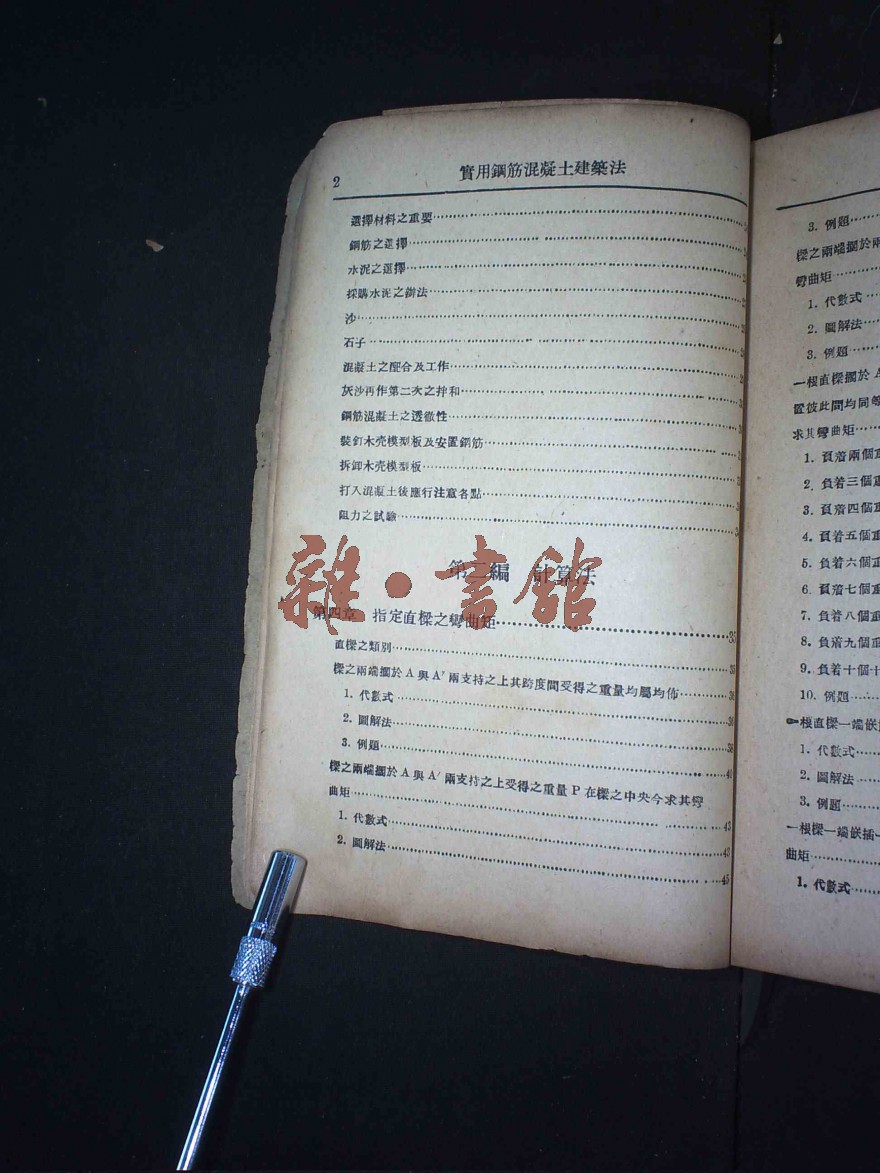 2
實用鋼筋混凝土建築法
選擇材料之重要
鋼筋之選擇
水泥之選擇
採購水泥之辦法
沙
石子
混凝土之配合及工作
灰沙再作第二次之拌和
鋼筋混凝土之透徹性
裝釘木壳模型板及安置鋼筋
拆卸木壳模型板
打入混凝土後應行注意各點
阻力之試驗
雜·書館
第二編 計算法
第四章 指定直樑之彎曲矩……35
直樑之類別……35
樑之兩端擱於A與A′兩支持之上其跨度間受得之重量均屬均佈……36
1. 代數式……36
2. 圖解法……38
3. 例題……40
樑之兩端擱於A與A′兩支持之上受得之重量P在樑之中央今求其彎
曲矩……43
1. 代數式……43
2. 圖解法……45
3. 例題
樑之兩端擱於兩
彎曲矩
1. 代數式
2. 圖解法
3. 例題
一根直樑擱於A
置彼此間均同等
求其彎曲矩
1. 負着兩個重
2. 負着三個重
3. 負着四個重
4. 負着五個重
5. 負着六個重
6. 負着七個重
7. 負着八個重
8. 負着九個重
9. 負着十個
10. 例題
一根直樑一端嵌
1. 代數式
2. 圖解法
3. 例題
一根樑一端嵌插
曲矩
1. 代數式